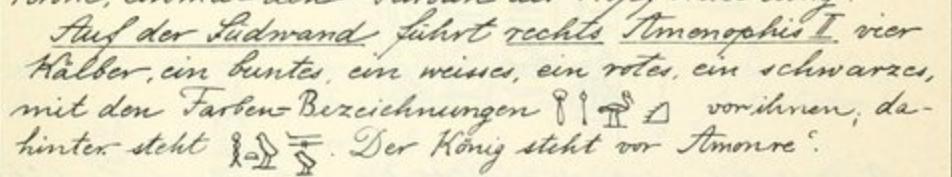 Auf der Südwand führt rechts Amenophis II. vier
Kälber, ein buntes, ein weisses, ein rotes, ein schwarzes,
mit den Farben=Bezeichnungen vor ihnen; da-
hinter steht . Der König steht vor Amonre‘.